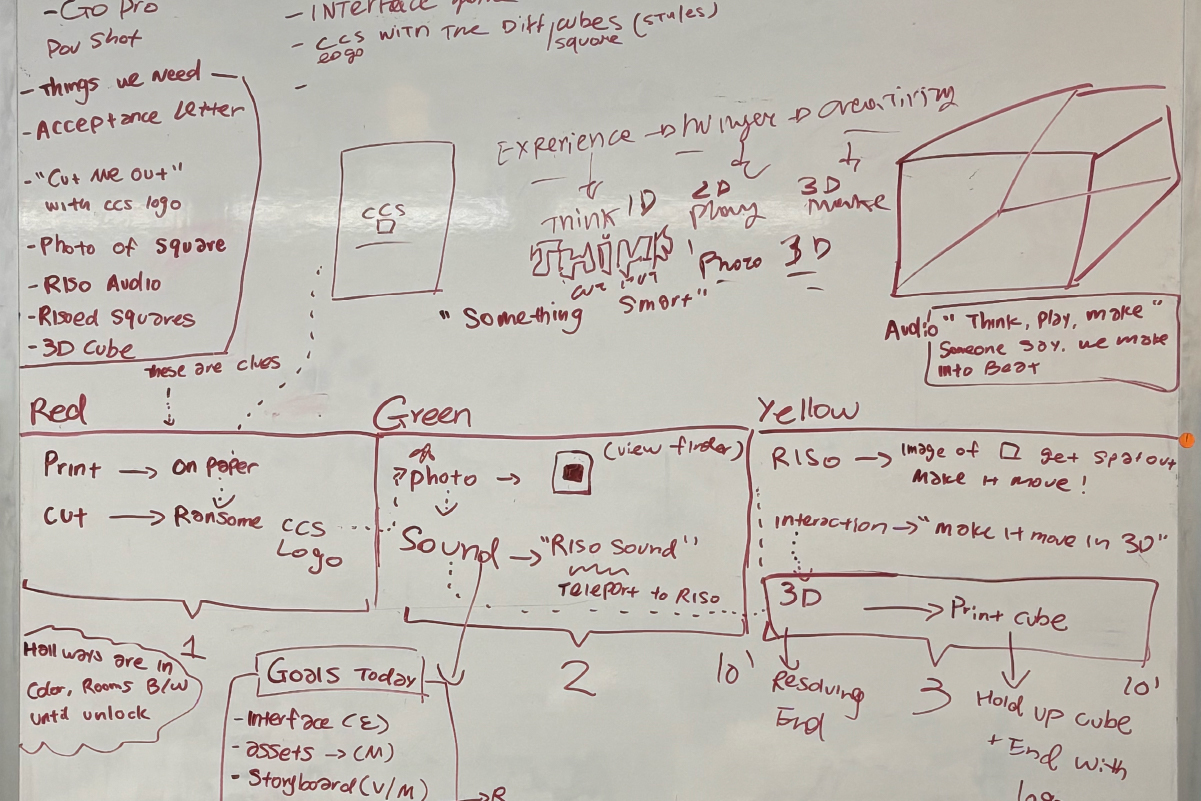 - GO Pro
Pov Shot
- INterface
- CCS WITH THE Diff/cubes (styles)
logo /square
-
- Things we Need
- Acceptance Letter
- "Cut Me out"
with ccs logo
- Photo of Square
- RISO Audio
- Risoed Squares
- 3D Cube
these are clues
CCS
EXPERIENCE
THINK 1D
2D
Play
3D
Make
THINK
cut out
Photo 3D
"Something Smart"
Audio " Think, Play, make "
Someone say. we make
into Beat
Red
Print → on paper
Cut → Ransome
CCS
Logo
1
Green
Photo → (view finder)
Sound → "RISO Sound"
Teleport to RISO
2
10'
Yellow
RISO → image of □ get spatout
Make it move!
interaction → "make it move in 3D"
3D → Print cube
Resolving
End
3
10'
Hold up cube
+ End with
Hallways are in
Color, Rooms B/W
until unlock
Goals Today
- Interface (E)
- assets → (M)
- Storyboard (V/M)
→ R